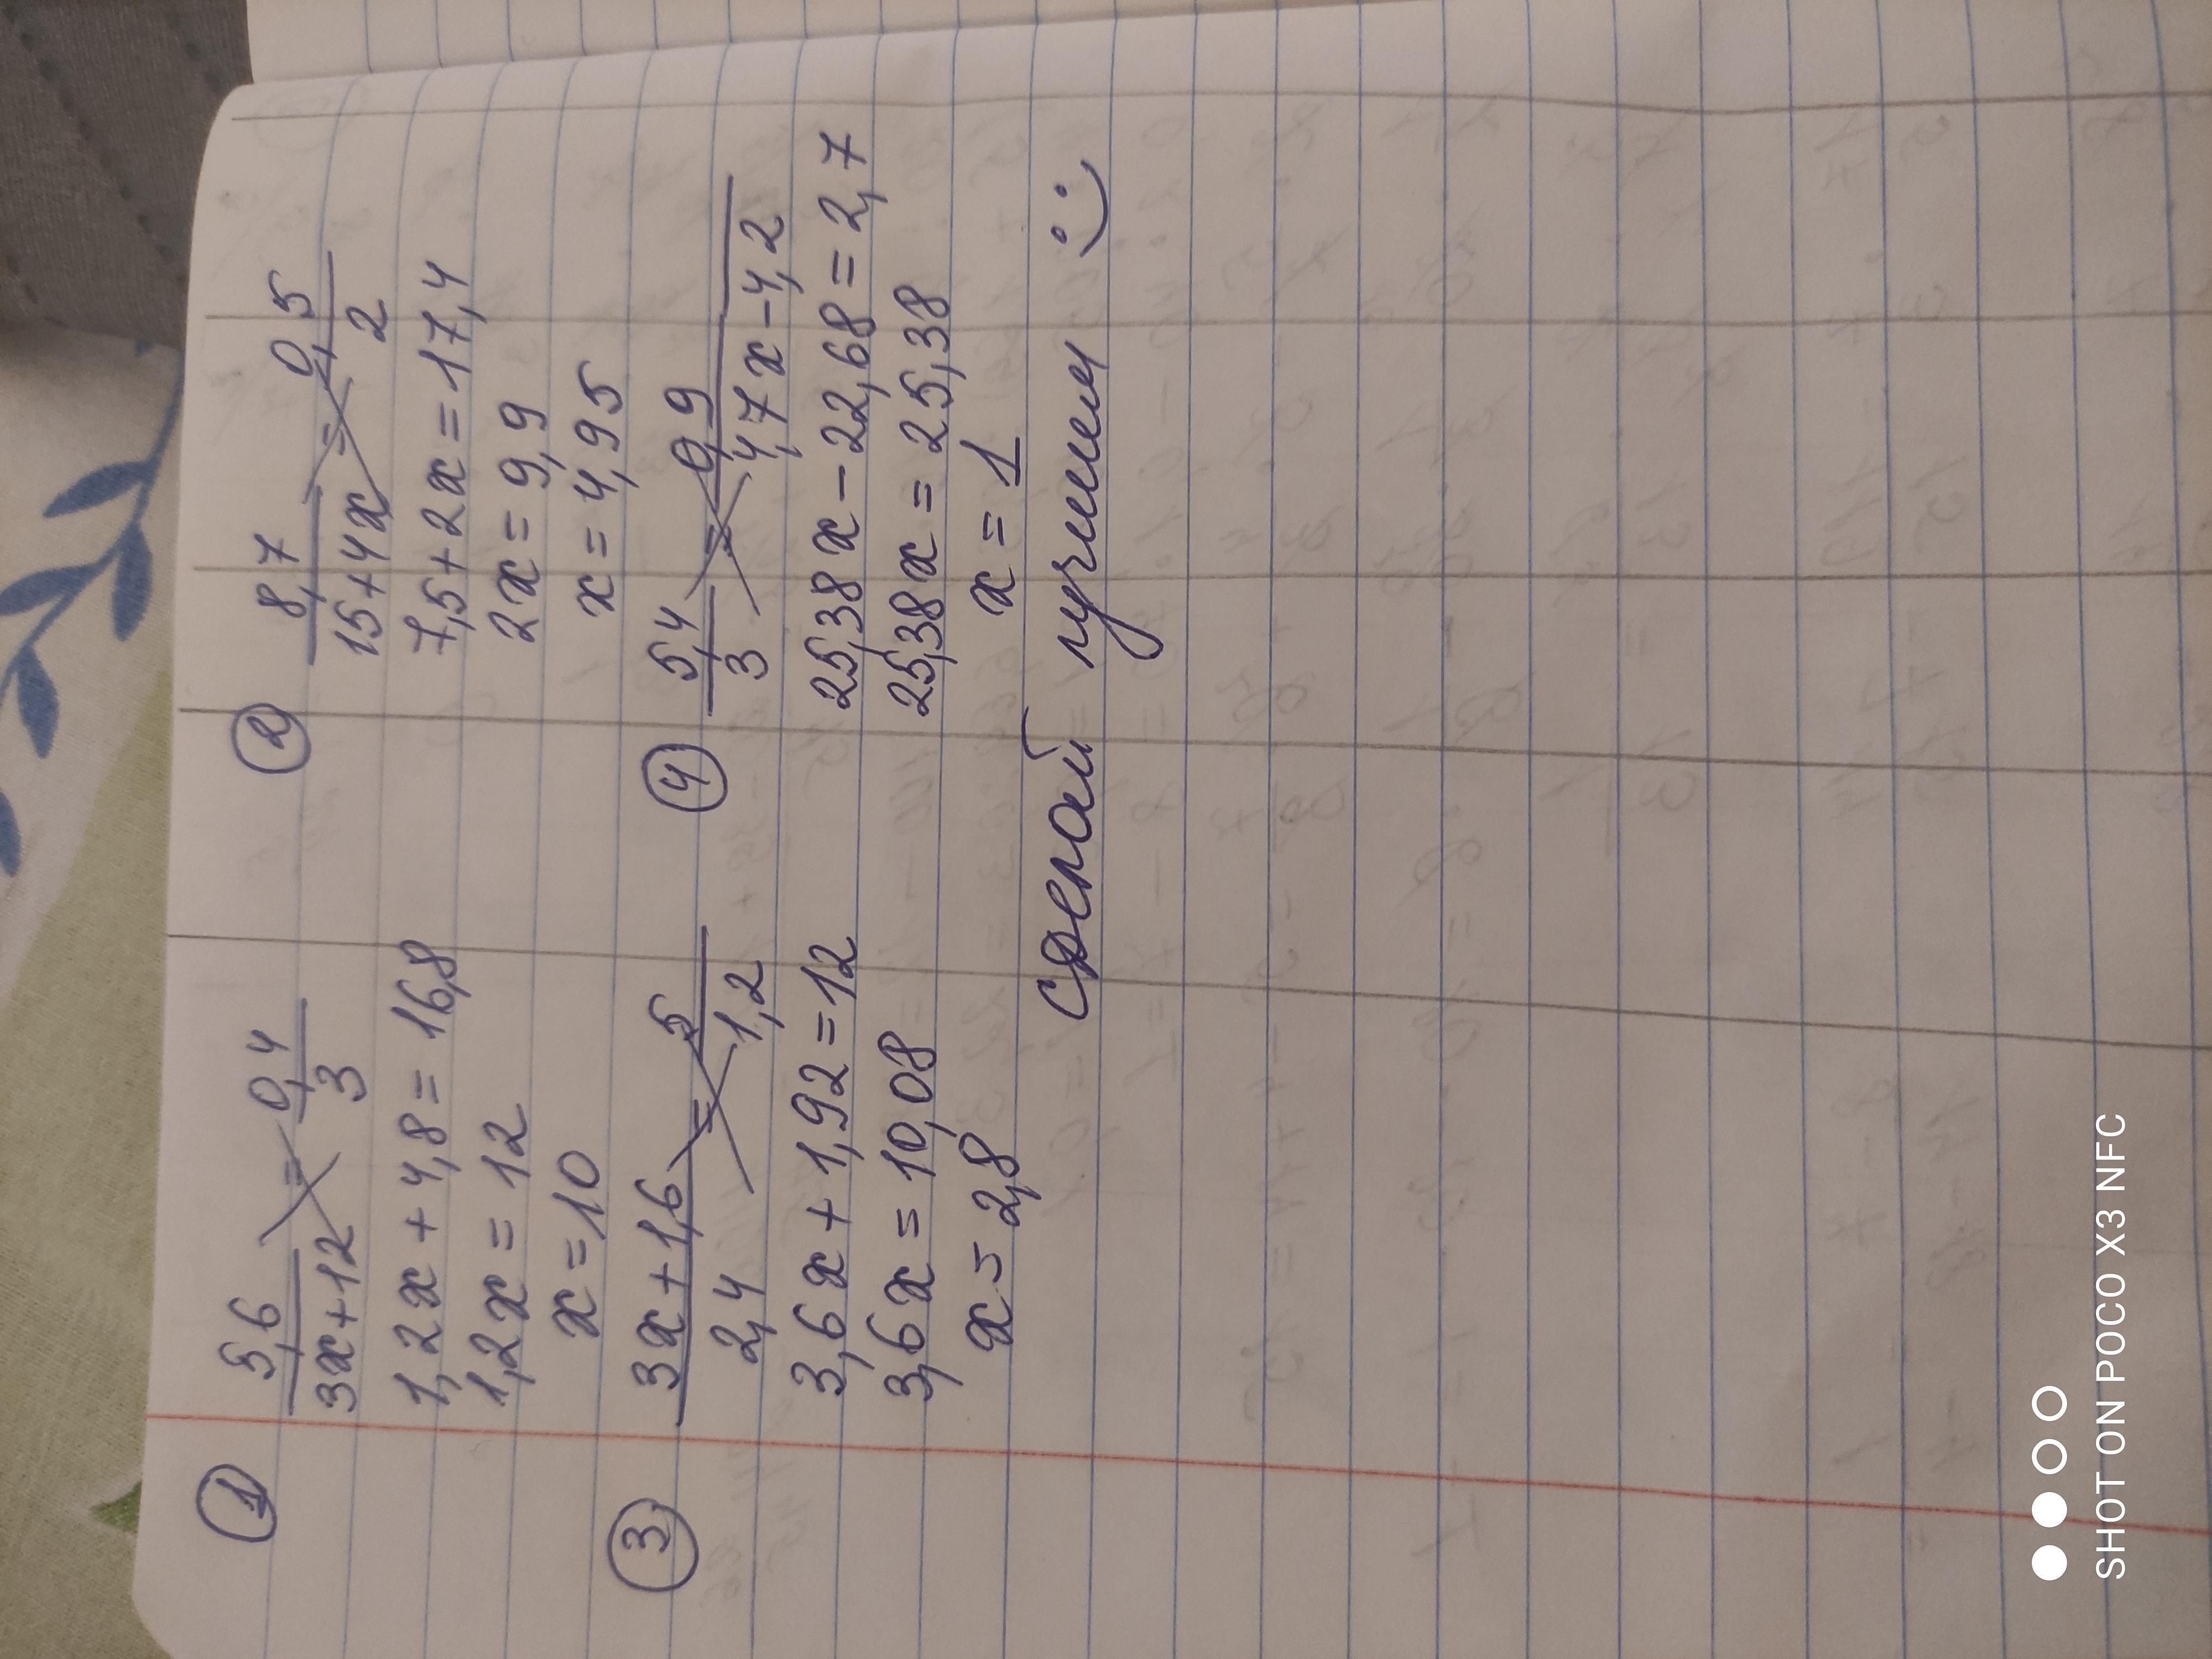 ① 5,6/3x+12 = 0,4/3
1,2x + 4,8 = 16,8
1,2x = 12
x = 10
② 8,7/15+4x = 0,5/2
7,5+2x = 17,4
2x = 9,9
x = 4,95
③ 3x+1,6/2,4 = 5/1,2
3,6x + 1,92 = 12
3,6x = 10,08
x = 2,8
④ 5,4/3 = 0,9/4,7x-4,2
25,38x - 22,68 = 2,7
25,38x = 25,38
x = 1
сделай лучшим :)
SHOT ON POCO X3 NFC